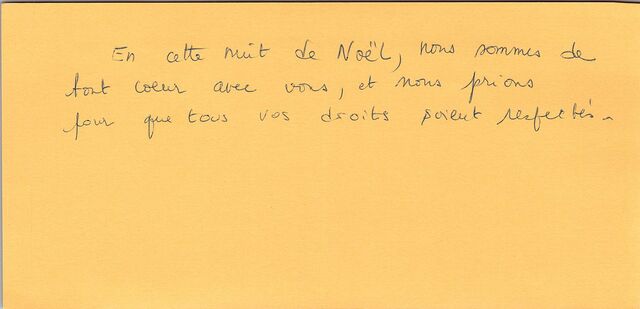 En cette nuit de Noël, nous sommes de
tout coeur avec vous, et nous prions
pour que tous vos droits soient respectés.